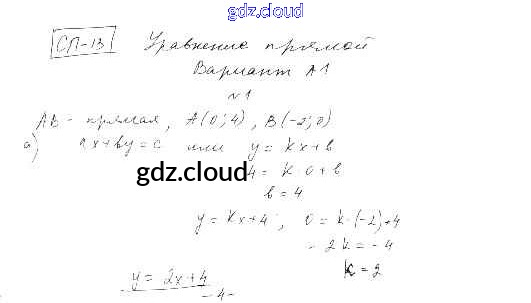 gdz.cloud
СП-13 Уравнение прямой
Вариант А1
№1
АВ - прямая, А(0; 4), В(-2; 0)
а) ax+by=c или y = kx+b
gdz.cloud 4= k·0+b
b=4
y= kx+4, 0= k·(-2)+4
-2k=-4
k=2
y= 2x+4
-4-